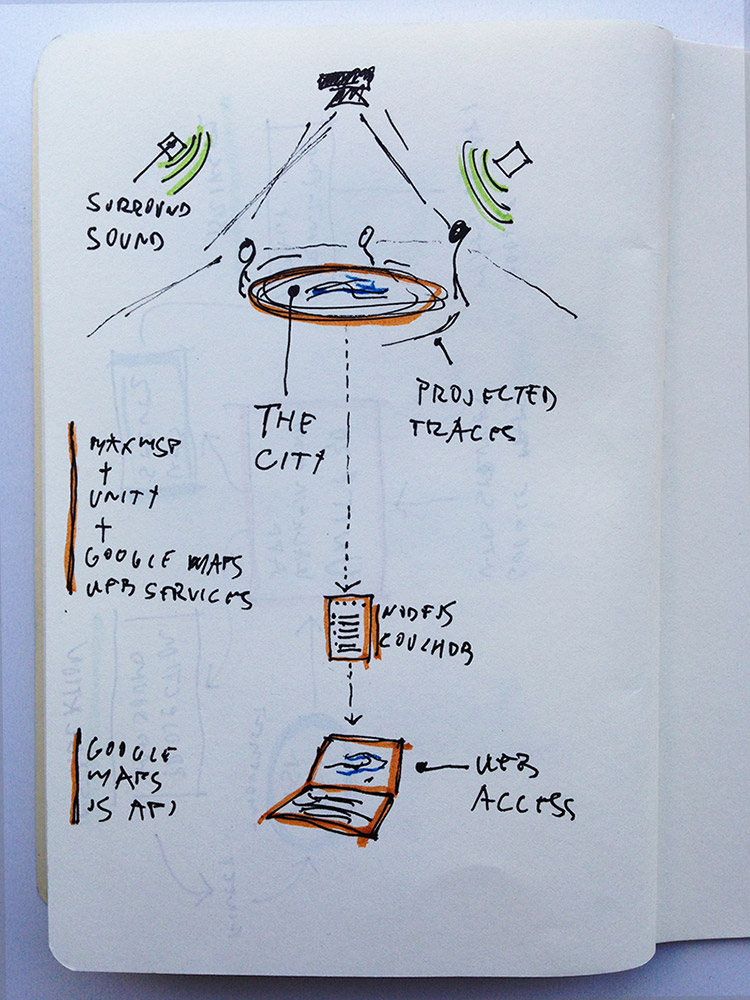 SURROUND
SOUND
PROJECTED
TRACES
THE
CITY
MAX MSP
+
UNITY
+
GOOGLE MAPS
WEB SERVICES
NODEJS
COUCHDB
GOOGLE
MAPS
JS API
WEB
ACCESS